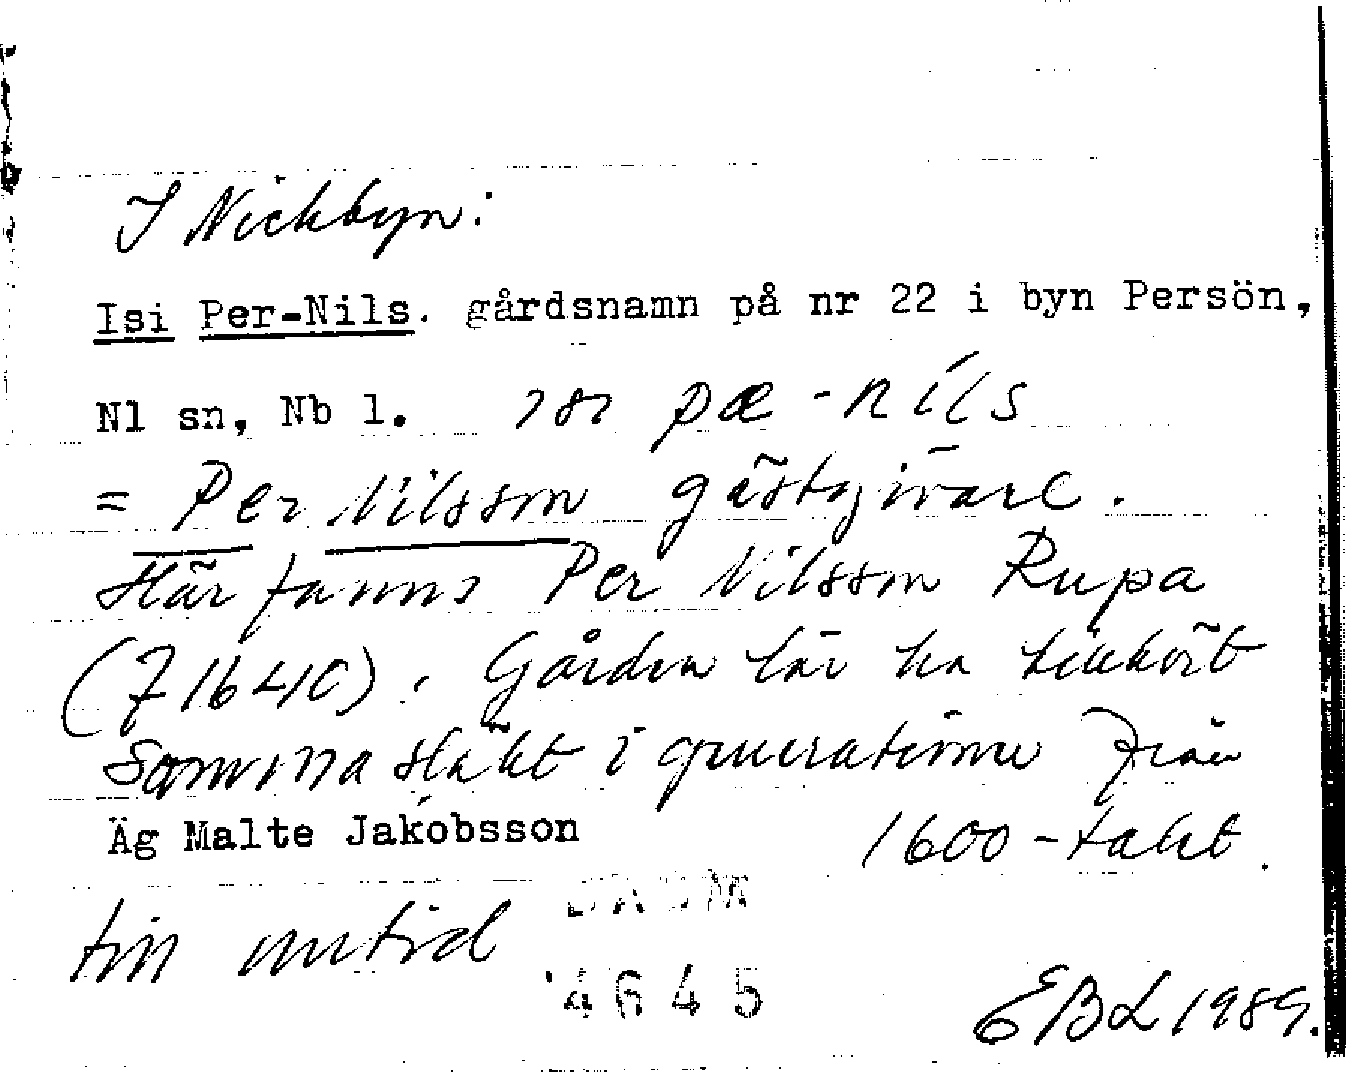 I Nickbyn:
Isi Per-Nils. gårdsnamn på nr 22 i byn Persön,
Nl sn, Nb l. pæ-nils
= Per Nilsson gästgivare.
Här fanns Per Nilsson Rupa
(f 1640). Gården lär ha tillhört
Samma släkt i generationer från
Äg Malte Jakobsson 1600-talet.
till nutid DAUM
4645
EBL 1989.